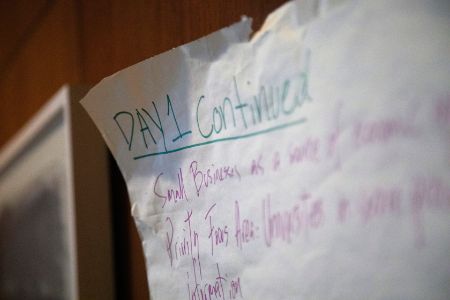 DAY 1 Continued
Small Business as a source of economic
Priority Focus Area: Universities
information